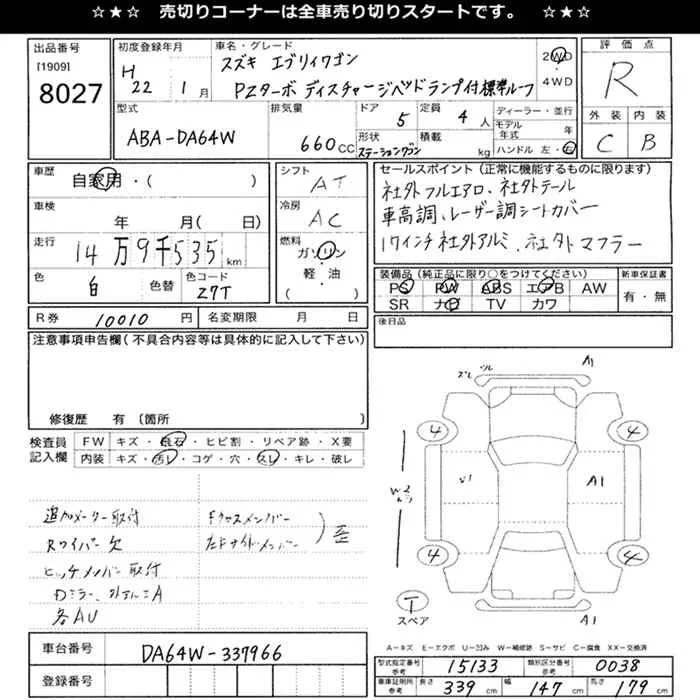 ☆★☆ 売切りコーナーは全車売り切りスタートです。 ☆★☆
出品番号
[1909]
8027
初度登録年月
H 22 1月
車名・グレード
スズキ エブリィワゴン
PZターボ ディスチャージヘッドランプ付標準ルーフ
2WD
4WD
評価点
R
外装 内装
C B
型式
ABA-DA64W
排気量
660cc
ドア
5
定員
4人
形状
ステーションワゴン
積載
kg
ディーラー・並行
モデル年式 年
ハンドル 左・右
車歴
自家用・( )
車検
年 月( 日)
走行
14万9千535km
色
白
色替
色コード
Z7T
シフト
AT
冷房
AC
燃料
ガソリン
軽・油
( )
セールスポイント(正常に機能するものに限ります)
社外フルエアロ、社外テール
車高調、レーザー調シートカバー
17インチ社外アルミ、社外マフラー
装備品(純正品に限り○をつけてください)
PS PW ABS エアB AW
SR ナビ TV カワ
新車保証書
有・無
R券 10010円
名変期限 月 日
後日品
注意事項申告欄(不具合内容等は具体的に記入して下さい)
修復歴 有〔箇所
検査員記入欄
FW キズ・飛石・ヒビ割・リペア跡・X要
内装 キズ・汚レ・コゲ・穴・スレ・キレ・破レ
追加メーター取付
Rワイパー欠
ヒッチメンバー取付
各AU
Fクロスメンバー
左Fサイドメンバー
歪
A1
4 4
A1
4 4
A1
T
スペア
A-キズ E-エクボ U-凹み W-補修跡 S-サビ C-腐食 XX-交換済
車台番号
DA64W-337966
登録番号
型式指定番号 参考
15133
類別区分番号 参考
0038
車庫証明用 参考
長さ 339cm 幅 147cm 高さ 179cm